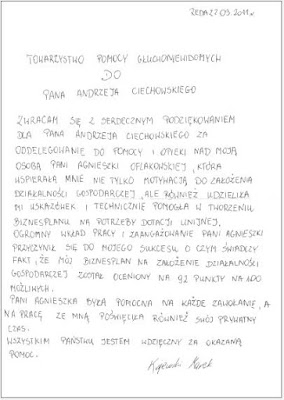 REDA 27.03.2011r.
TOWARZYSTWO POMOCY GŁUCHONIEWIDOMYCH
DO
PANA ANDRZEJA CIECHOWSKIEGO
ZWRACAM SIĘ Z SERDECZNYM PODZIĘKOWANIEM
DLA PANA ANDRZEJA CIECHOWSKIEGO ZA
ODDELEGOWANIE DO POMOCY I OPIEKI NAD MOJĄ
OSOBĄ PANI AGNIESZKI OFLAKOWSKIEJ, KTÓRA
WSPIERAŁA MNIE NIE TYLKO MOTYWACJĄ DO ZAŁOŻENIA
DZIAŁALNOŚCI GOSPODARCZEJ, ALE RÓWNIEŻ UDZIELIŁA
MI WSKAZÓWEK I TECHNICZNIE POMOGŁA W TWORZENIU
BIZNESPLANU NA POTRZEBY DOTACJI UNIJNEJ,
OGROMNY WKŁAD PRACY I ZAANGAŻOWANIE PANI AGNIESZKI
PRZYCZYNIŁ SIĘ DO MOJEGO SUKCESU O CZYM ŚWIADCZY
FAKT, ŻE MÓJ BIZNESPLAN NA ZAŁOŻENIE DZIAŁALNOŚCI
GOSPODARCZEJ ZOSTAŁ OCENIONY NA 92 PUNKTY NA 100
MOŻLIWYCH.
PANI AGNIESZKA BYŁA POMOCNA NA KAŻDE ZAWOŁANIE, A
NA PRACĘ ZE MNĄ POŚWIĘCIŁA RÓWNIEŻ SWÓJ PRYWATNY
CZAS.
WSZYSTKIM PAŃSTWU JESTEM WDZIĘCZNY ZA OKAZANĄ
POMOC.
Marek